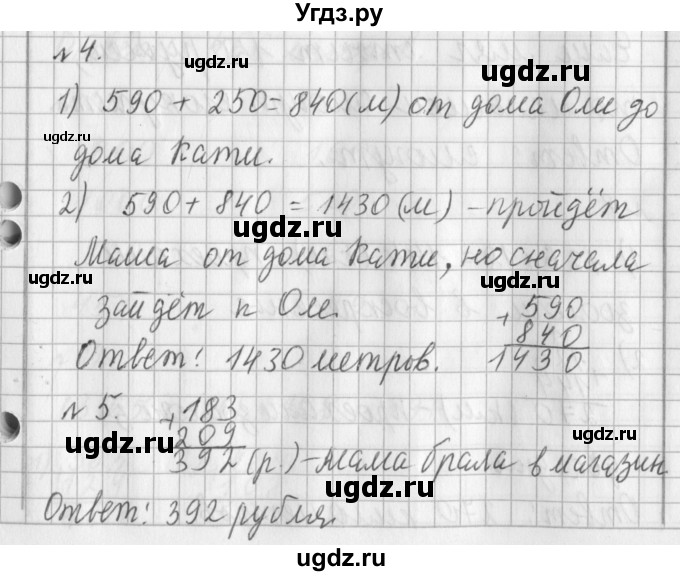 Угдз.ру
№ 4.
1) 590 + 250 = 840 (м) от дома Оли до
дома Кати.
2) 590 + 840 = 1430 (м) – пройдёт
Маша от дома Кати, но сначала
зайдёт к Оле.
+ 590
840
1430
Ответ: 1430 метров.
№ 5. + 183
209
392 (р) – мама брала в магазин
Ответ: 392 рубля.
ugdz.ru
ugdz.ru
ugdz.ru
ugdz.ru
ugdz.ru
ugdz.ru
ugdz.ru
ugdz.ru
ugdz.ru
ugdz.ru
ugdz.ru
ugdz.ru
ugdz.ru